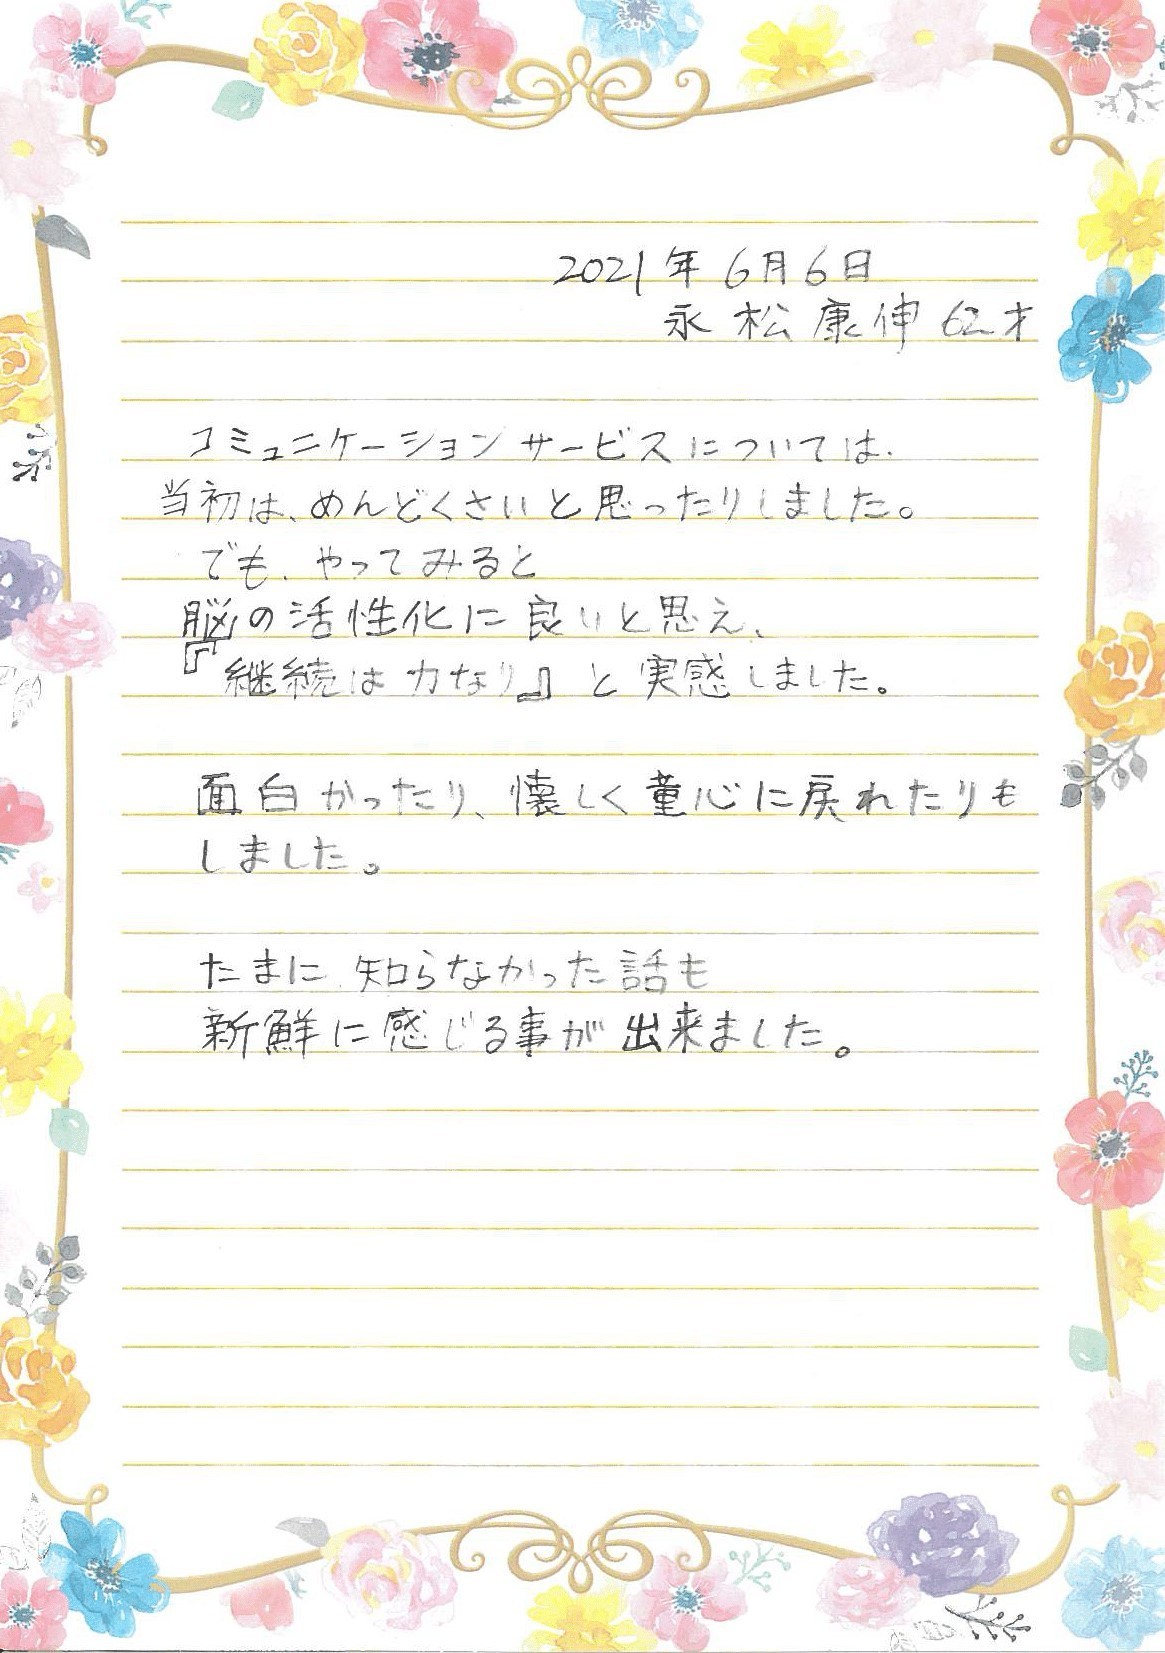 2021年6月6日
永松康伸 62才
コミュニケーションサービスについては、
当初は、めんどくさいと思ったりしました。
でも、やってみると
脳の活性化に良いと思え、
『継続は力なり』と実感しました。
面白かったり、懐しく童心に戻れたりも
しました。
たまに知らなかった話も
新鮮に感じる事が出来ました。